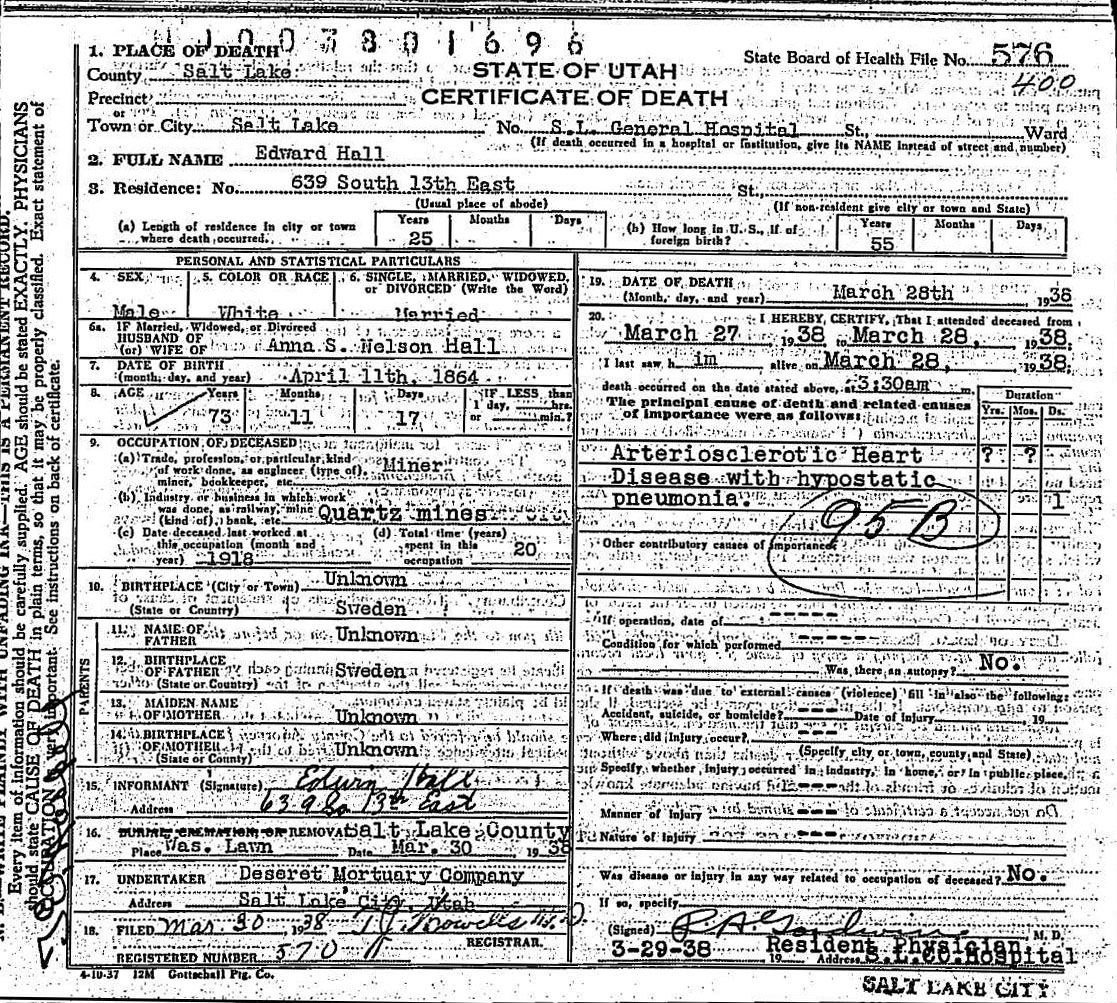 1003801696
1. PLACE OF DEATH
County Salt Lake
STATE OF UTAH
State Board of Health File No. 576
400
Precinct
CERTIFICATE OF DEATH
or
Town or City Salt Lake No. S.L. General Hospital St., Ward
(If death occurred in a hospital or institution, give its NAME instead of street and number)
2. FULL NAME Edward Hall
3. Residence: No. 639 South 13th East St.
(Usual place of abode) (If non-resident give city or town and State)
(a) Length of residence in city or town where death occurred. Years 25 Months Days
(b) How long in U. S., if of foreign birth? Years 55 Months Days
PERSONAL AND STATISTICAL PARTICULARS
4. SEX 5. COLOR OR RACE 6. SINGLE, MARRIED, WIDOWED,
or DIVORCED (Write the Word)
Male White Married
6a. IF Married, Widowed, or Divorced
HUSBAND OF
(or) WIFE OF Anna S. Nelson Hall
7. DATE OF BIRTH
(month, day, and year) April 11th, 1864
8. AGE Years Months Days IF LESS than
1 day, hrs.
73 11 17 or min.?
9. OCCUPATION OF DECEASED
(a) Trade, profession, or particular kind
of work done, as engineer (type of), Miner
miner, bookkeeper, etc.
(b) Industry or business in which work
was done, as railway, mine Quartz mines
(kind of), bank, etc.
(c) Date deceased last worked at (d) Total time (years)
this occupation (month and spent in this 20
year) 1918 occupation
10. BIRTHPLACE (City or Town) Unknown
(State or Country) Sweden
PARENTS
11. NAME OF
FATHER Unknown
12. BIRTHPLACE
OF FATHER Sweden
(State or Country)
13. MAIDEN NAME
OF MOTHER Unknown
14. BIRTHPLACE
OF MOTHER Unknown
(State or Country)
15. INFORMANT (Signature) Edwin Hall
Address 639 So 13th East
16. BURIAL, CREMATION, OR REMOVAL Salt Lake County
Place Was. Lawn Date Mar. 30 1938
17. UNDERTAKER Deseret Mortuary Company
Address Salt Lake City, Utah
18. FILED Mar 30 1938 M.D.
REGISTRAR.
REGISTERED NUMBER 570
4-10-37 12M Gottschall Ptg. Co.
19. DATE OF DEATH
(Month, day, and year) March 28th 1938
20. I HEREBY CERTIFY, That I attended deceased from
March 27 1938 to March 28, 1938,
I last saw him alive on March 28, 1938,
death occurred on the date stated above, at 3:30am m.
The principal cause of death and related causes
of importance were as follows: Duration
Yrs. Mos. Ds.
Arteriosclerotic Heart ? ?
Disease with hypostatic
pneumonia. 1
95 B
Other contributory causes of importance:
If operation, date of ----
Condition for which performed -----
Was there an autopsy? No.
If death was due to external causes (violence) fill in also the following:
Accident, suicide, or homicide? --- Date of injury 19
Where did injury occur? ---
(Specify city or town, county, and State)
Specify whether injury occurred in industry, in home, or in public place,
---
Manner of injury ---
Nature of injury ---
Was disease or injury in any way related to occupation of deceased? No.
If so, specify
(Signed) M. D.
3-29-38 19 Resident Physician
Address S.L.CO.Hospital
SALT LAKE CITY
WRITE PLAINLY WITH UNFADING INK—THIS IS A PERMANENT RECORD.
Every item of information should be carefully supplied. AGE should be stated EXACTLY. PHYSICIANS
should state CAUSE OF DEATH in plain terms, so that it may be properly classified. Exact statement of
OCCUPATION is very important. See instructions on back of certificate.